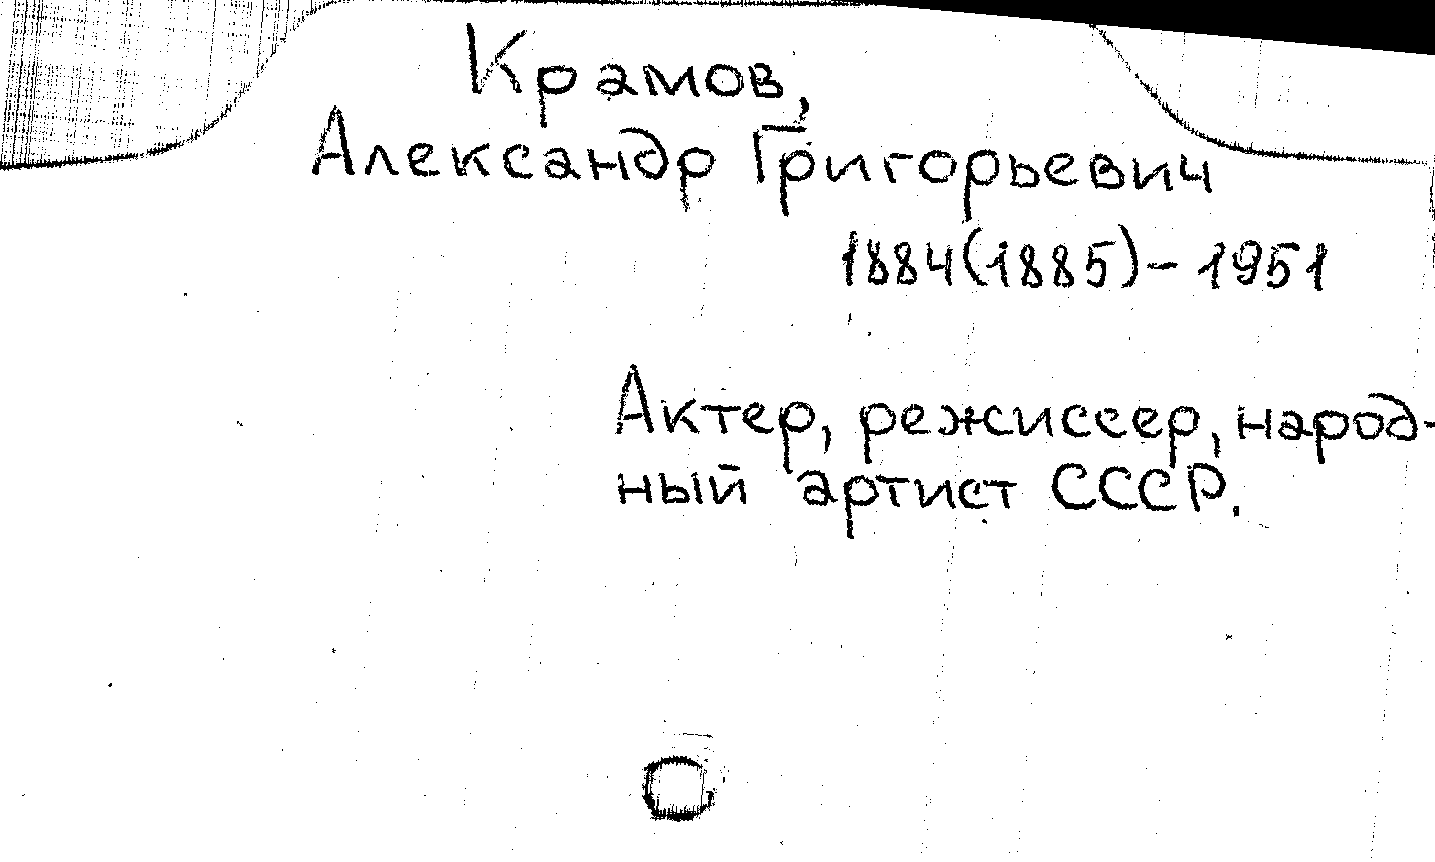 Крамов,
Александр Григорьевич
1884(1885)-1951
Актер, режиссер, народ-
ный артист СССР.